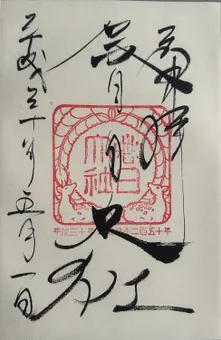 奉拝
春日大社
平成三十年五月一日
春日
大社
平成三十年
五十年